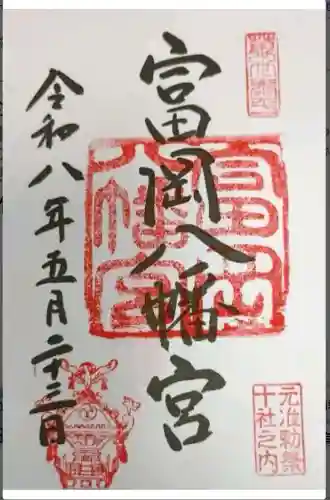 富岡八幡宮
元准勅祭
十社之内
令和八年五月二十二日
富岡
八幡宮